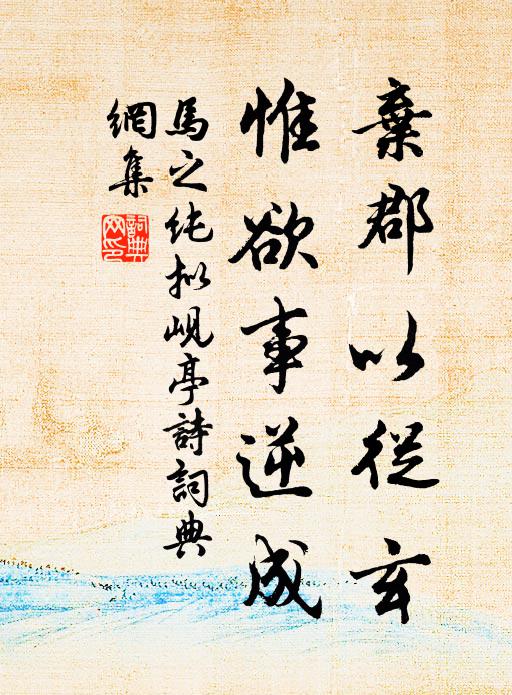 棄郡以從玄
惟欲事遂成
馬之純拟峴亭詩詞典
網集
詞典
网印